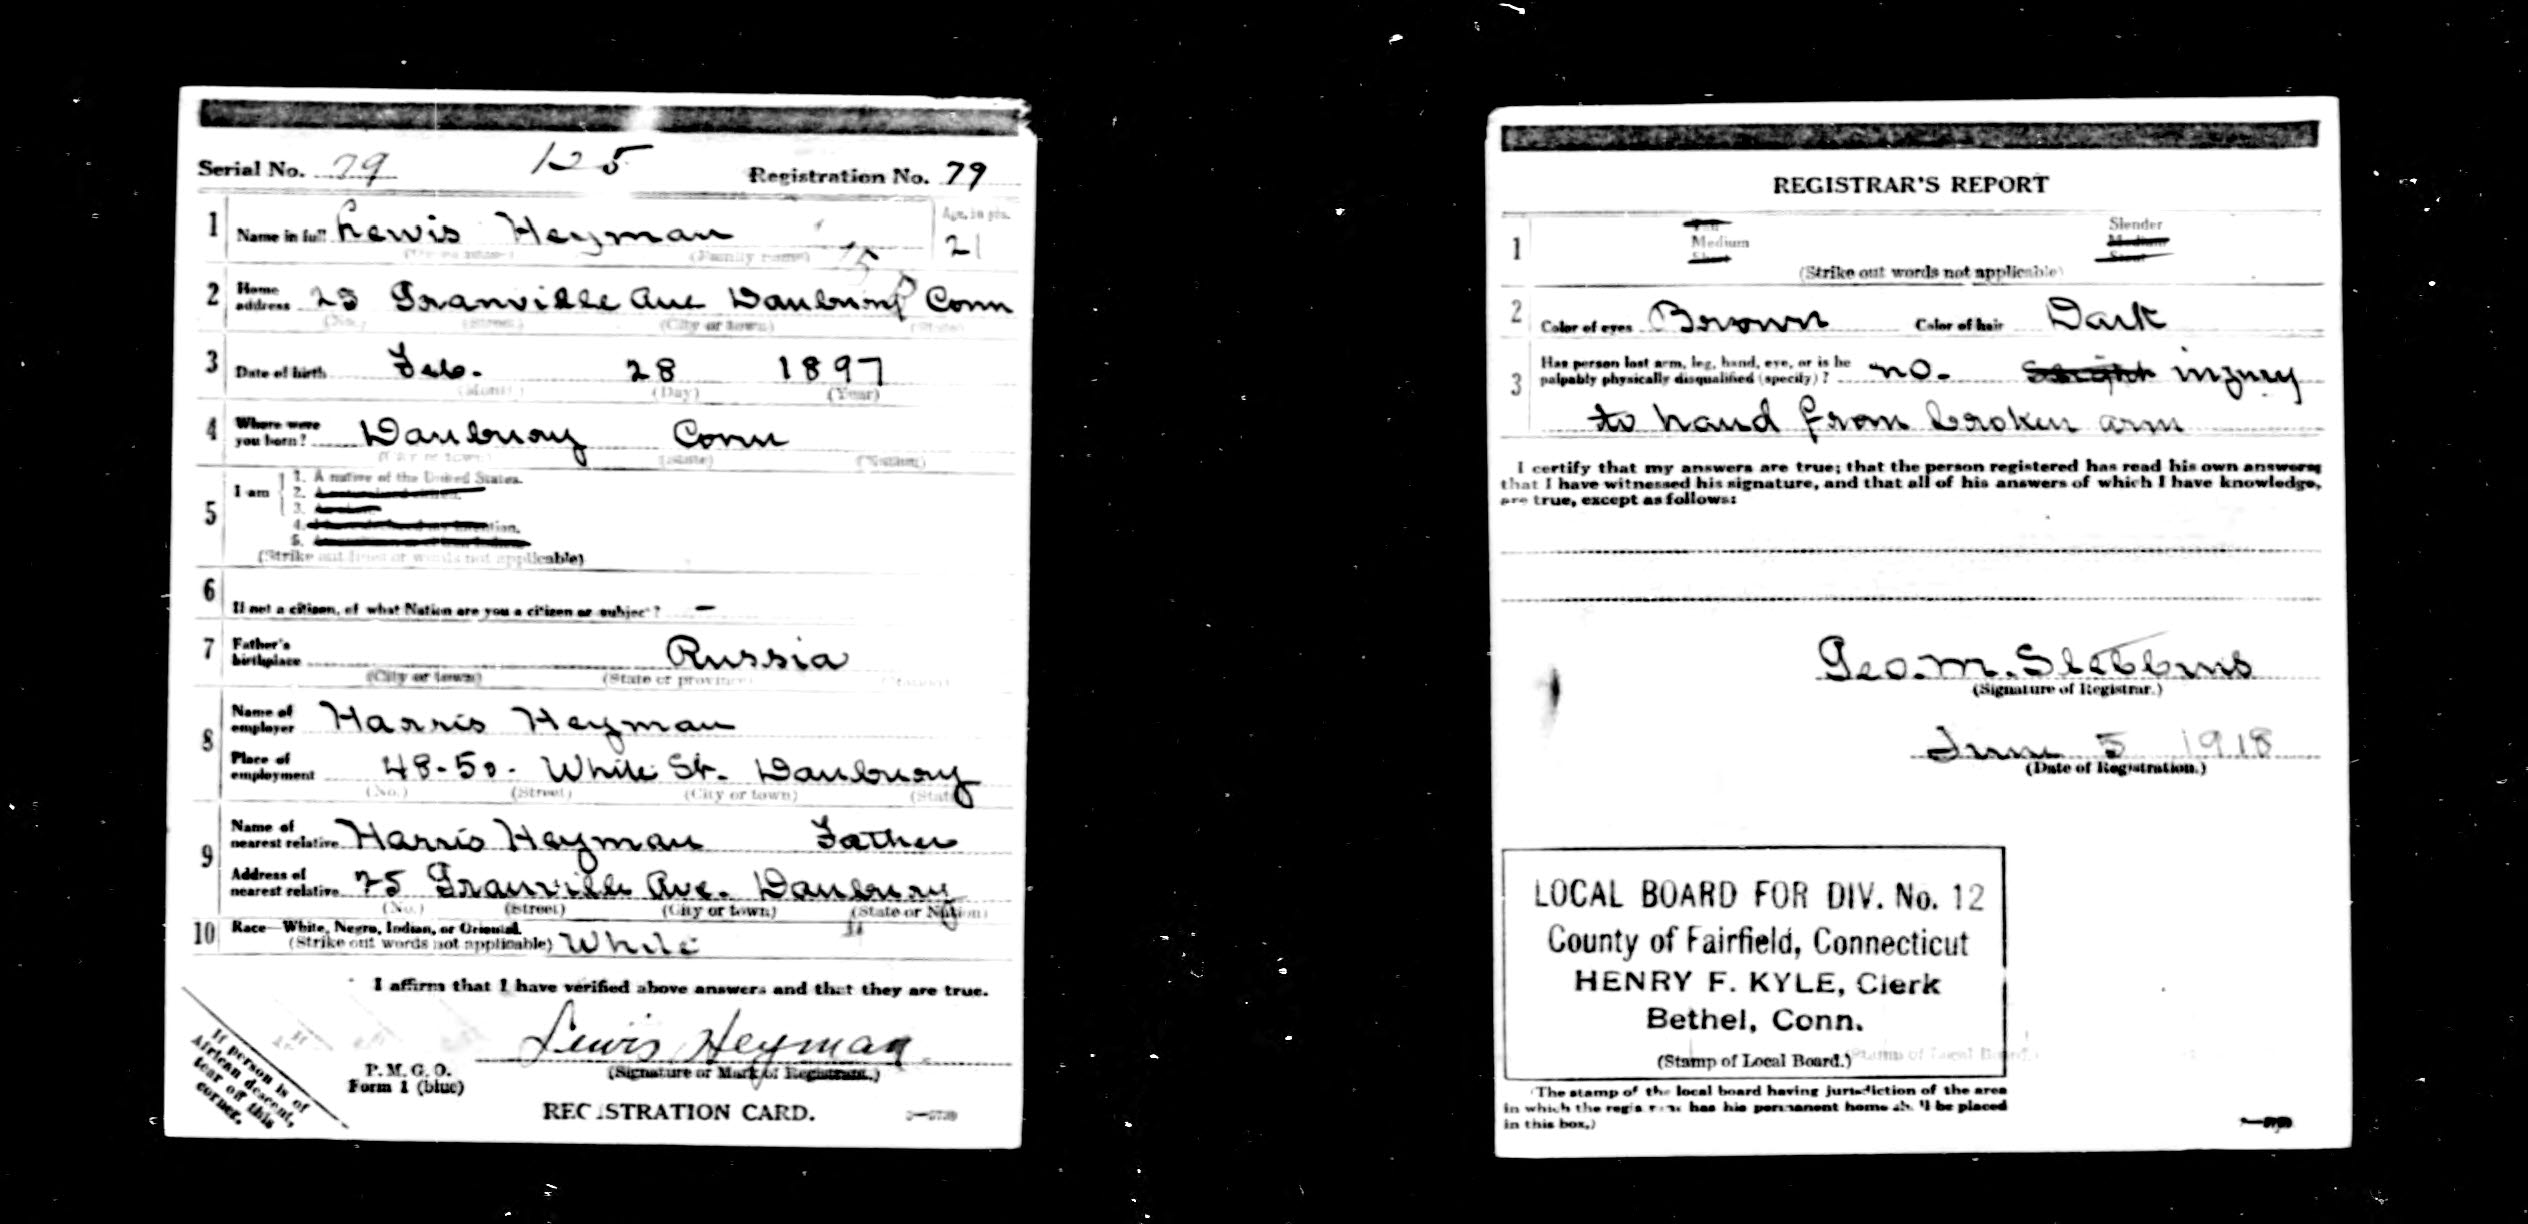 Serial No. 79 125 Registration No. 79
1 Name in full Lewis Heyman Age, in yrs.
(Given name) (Family name) 21
15
2 Home address 25 Granville Ave Danbury Conn
(No.) (Street) (City or town) (State)
3 Date of birth Feb. 28 1897
(Month) (Day) (Year)
4 Where were you born? Danbury Conn
(City or town) (State) (Nation)
5 I am 1. A native of the United States.
2.
3.
4. intention.
5.
(Strike out lines or words not applicable)
6 If not a citizen, of what Nation are you a citizen or subject? –
7 Father's birthplace Russia
(City or town) (State or province) (Nation)
8 Name of employer Harris Heyman
Place of employment 48-50. White St. Danbury
(No.) (Street) (City or town) (State)
9 Name of nearest relative Harris Heyman Father
Address of nearest relative 75 Granville Ave. Danbury
(No.) (Street) (City or town) (State or Nation)
10 Race—White, Negro, Indian, or Oriental.
(Strike out words not applicable) White
I affirm that I have verified above answers and that they are true.
Lewis Heyman
(Signature or Mark of Registrant.)
P. M. G. O.
Form 1 (blue)
REGISTRATION CARD.
If person is of
African descent,
tear off this
corner.
REGISTRAR'S REPORT
1 Tall Slender
Medium Medium
Short Stout
(Strike out words not applicable)
2 Color of eyes Brown Color of hair Dark
3 Has person lost arm, leg, hand, eye, or is he
palpably physically disqualified (specify)? no. Slight injury
to hand from broken arm
I certify that my answers are true; that the person registered has read his own answers;
that I have witnessed his signature, and that all of his answers of which I have knowledge,
are true, except as follows:
Geo. M. Stebbins
(Signature of Registrar.)
June 5 1918
(Date of Registration.)
LOCAL BOARD FOR DIV. No. 12
County of Fairfield, Connecticut
HENRY F. KYLE, Clerk
Bethel, Conn.
(Stamp of Local Board.)
(The stamp of the local board having jurisdiction of the area
in which the registrant has his permanent home shall be placed
in this box.)